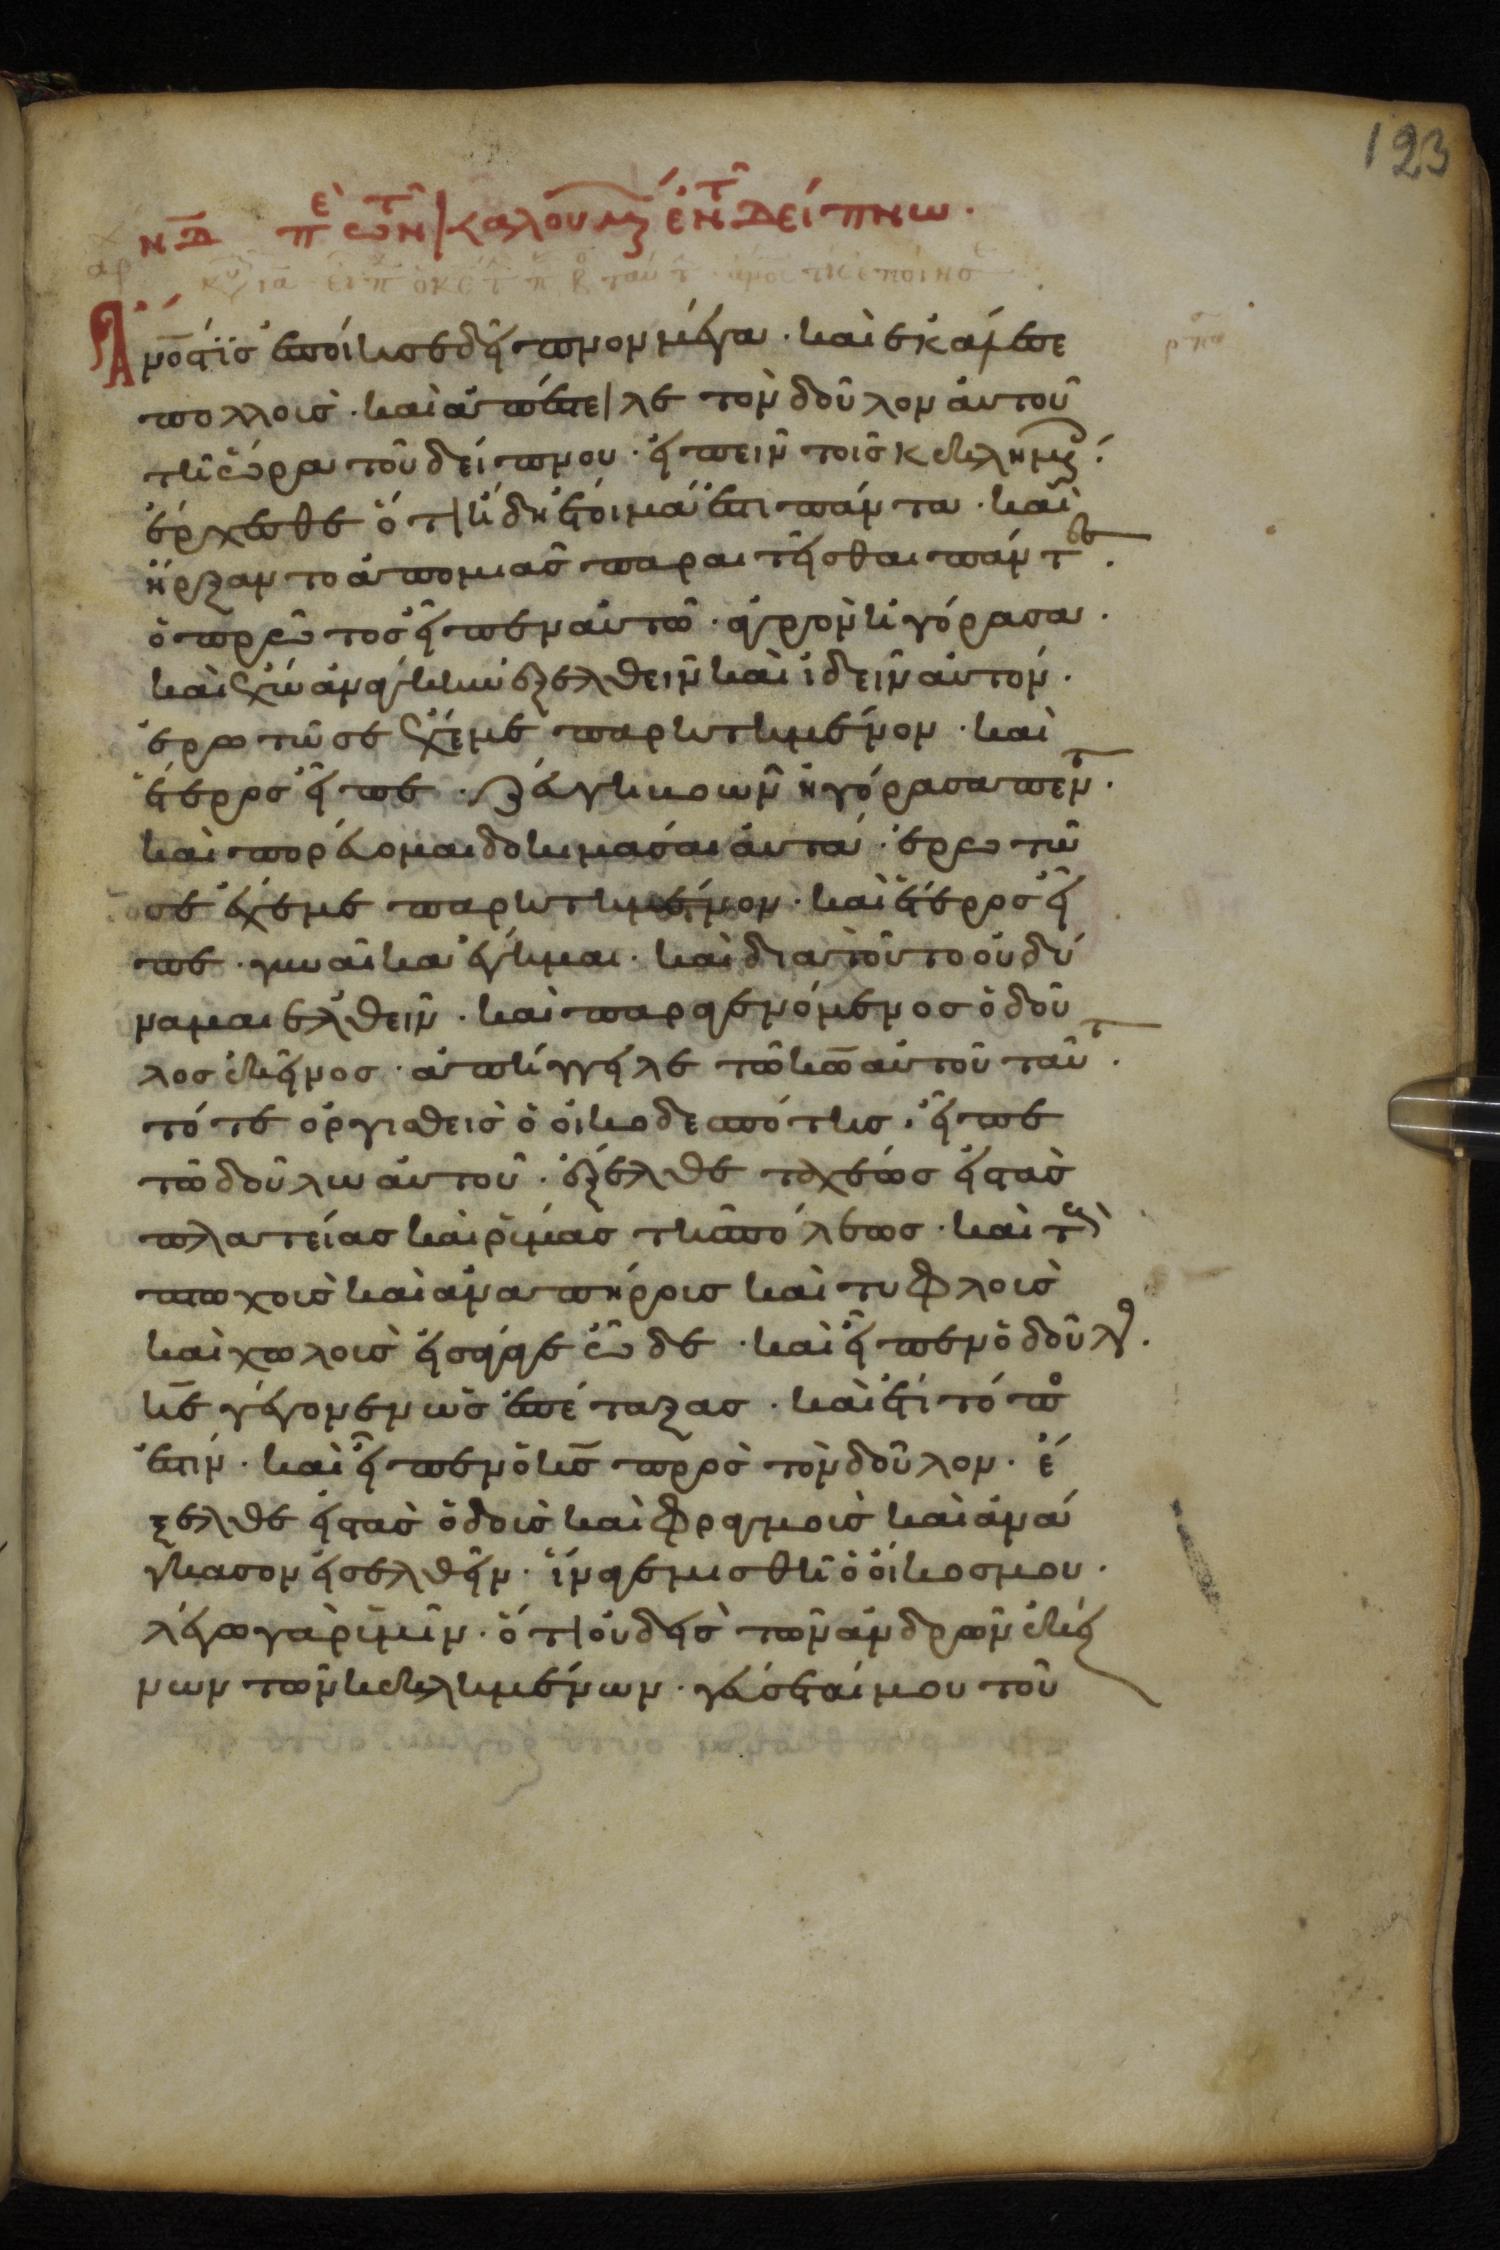 ν̅δ̅ πε τῶν καλουμ ἐν τ δείπνω ·
Ἄνο̅ς τϊς ἐποίησε δεῖπνον μέγα · καὶ ἐκάλεσε
πολλοὺς · καὶ ἀπέστειλε τὸν δοῦλον αὐτοῦ
τῆ ὥρα τοῦ δείπνου · εἰπεῖν τοῖς κεκλημ :
ἔρχεσθε ὅτι ἤδη ἕτοιμά ἐστι πάντα · καὶ
ἤρξαντο ἀπὸ μιᾶς παραιτεῖσθαι πάντες .
ὁ πρῶτος εἶπεν αὐτῶ · ἀγρὸν ἠγόρασα ·
καὶ ἔχω ἀνάγκην ἐξελθεῖν καὶ ἰδεῖν αὐτόν ·
ἐρωτῶ σε ἔχε με παρητημένον · καὶ
ἕτερος εἶπε · ζεύγη βοῶν ἠγόρασα πέντ .
καὶ πορεύομαι δοκιμάσαι αὐτά · ἐρωτῶ
σε ἔχε με παρητημένον · καὶ ἕτερος εἶ
πε · γυναῖκα ἔγημα · καὶ διατοῦτο οὐ δύ
ναμαι ἐλθεῖν · καὶ παραγενόμενος ὁ δοῦ
λος ἐκεῖνος · ἀπήγγειλε τῶ κω̅ αὐτοῦ ταῦτ .
τότε ὀργισθεὶς ὁ οἰκοδεσπότης · εἶπε
τῶ δούλω αὐτοῦ · ἔξελθε ταχέως εἰς τὰς
πλατείας καὶ ῥύμας τῆς πόλεως · καὶ τοὺς
πτωχοὺς καὶ ἀναπήρους καὶ τυφλοὺς
καὶ χωλοὺς εἰσάγαγε ὧδε · καὶ εἶπεν ὁ δοῦλος .
κε̅ γέγονεν ὡς ἐπέταξας · καὶ ἔτι τόπο
ἐστίν · καὶ εἶπεν ὁ κς̅ πρὸς τὸν δοῦλον · ἔ
ξελθε εἰς τὰς ὁδοὺς καὶ φραγμοὺς καὶ ἀνά
γκασον εἰσελθεῖν · ἵνα γεμισθῆ ὁ οἶκος μου ·
λέγω γὰρ ὑμῖν · ὅτι οὐδεὶς τῶν ἀνδρῶν ἐκεί
νων τῶν κεκλημένων · γεύσεταί μου τοῦ
123